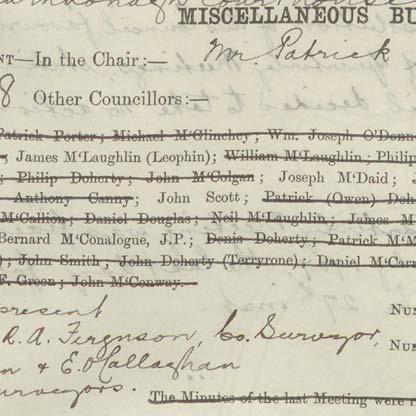 MISCELLANEOUS BU
NT—In the Chair:— Mr. Patrick
8 Other Councillors:—
Patrick Porter; Michael M'Glinchey; Wm. Joseph O'Donn
; James M'Laughlin (Leophin); William M'Laughlin; Philip
; Philip Doherty; John M'Colgan; Joseph M'Daid; J
Anthony Canny; John Scott; Patrick (Owen) Doh
M'Callion; Daniel Douglas; Neil M'Laughlin; James M
Bernard M'Conalogue, J.P.; Denis Doherty; Patrick M'M
); John Smith; John Doherty (Terryrone); Daniel M'Car
F. Green; John M'Conway.
present
NUM
R. A. Ferguson, Co. Surveyor,
NUM
n & E. O'Callaghan
urveyors.
The Minutes of the last Meeting were r